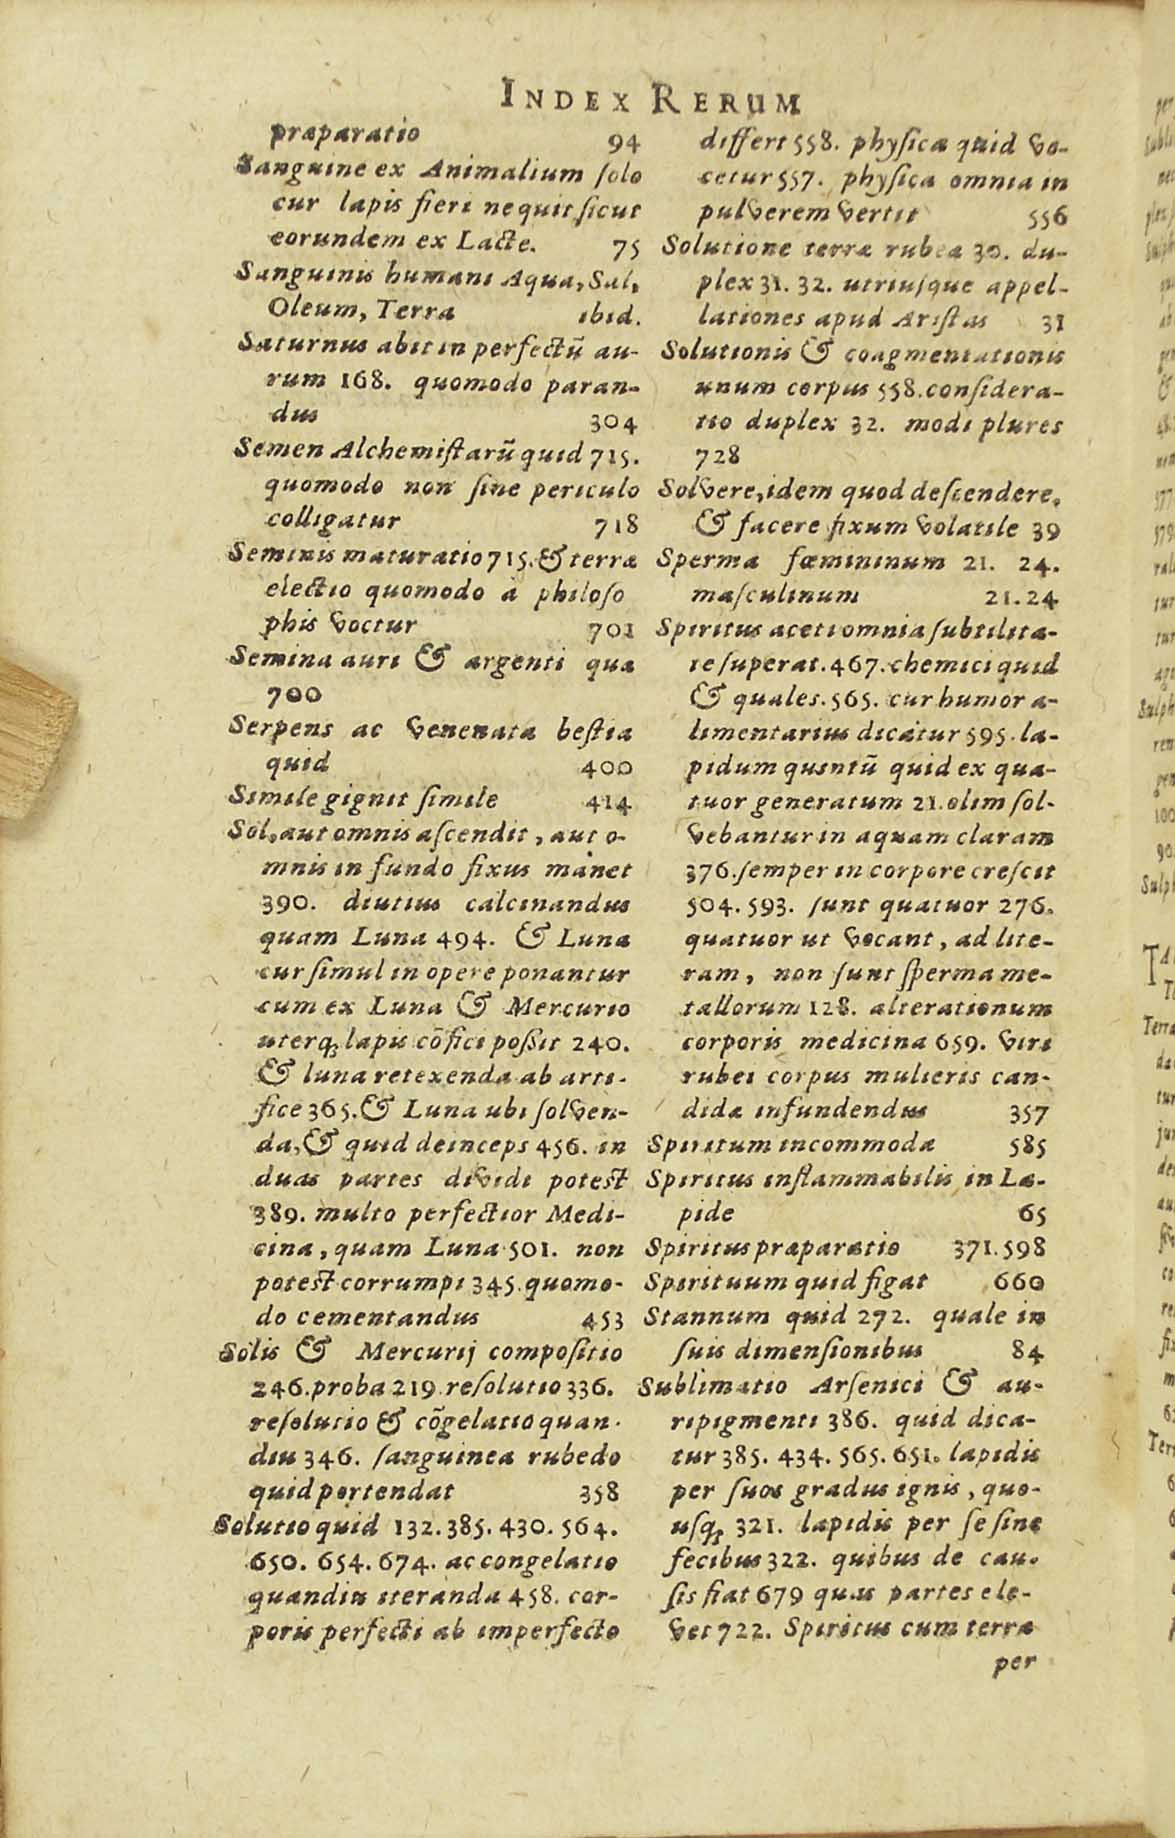 INDEX RERUM
præparatio 94
Sanguine ex Animalium ſolo
cur lapis fieri nequit ſicut
eorundem ex Lacte. 75
Sanguinis humani Aqua, Sal,
Oleum, Terra ibid.
Saturnus abit in perfectū au-
rum 168. quomodo paran-
dus 304
Semen Alchemiſtarū quid 715.
quomodo non ſine periculo
colligatur 718
Seminis maturatio 715. & terræ
electio quomodo à philoſo
phis voctur 701
Semina auri & argenti quæ
700
Serpens ac venenata beſtia
quid 400
Simile gignit ſimile 414
Sol, aut omnis aſcendit, aut o-
mnis in fundo fixus manet
390. diutius calcinandus
quam Luna 494. & Luna
cur ſimul in opere ponantur
cum ex Luna & Mercurio
uterq; lapis cōfici poſsit 240.
& luna retexenda ab arti-
fice 365. & Luna ubi ſolven-
da, & quid deinceps 456. in
duas partes dividi poteſt
389. multo perfectior Medi-
cina, quam Luna 501. non
poteſt corrumpi 345. quomo-
do cementandus 453
Solis & Mercurij compoſitio
246. proba 219. reſolutio 336.
reſolutio & cōgelatio quan-
diu 346. ſanguinea rubedo
quid portendat 358
Solutio quid 132. 385. 430. 564.
650. 654. 674. ac congelatio
quandiu iteranda 458. cor-
poris perfecti ab imperfecto
differt 558. phyſica quid vo-
cetur 557. phyſica omnia in
pulverem vertit 556
Solutione terræ rubea 30. du-
plex 31. 32. utriuſque appel-
lationes apud Ariſtas 31
Solutionis & coagmentationis
unum corpus 558. conſidera-
tio duplex 32. modi plures
728
Solvere, idem quod deſcendere,
& facere fixum volatile 39
Sperma fœmininum 21. 24.
maſculinum 21. 24
Spiritus aceti omnia ſubtilita-
te ſuperat. 467. chemici quid
& quales. 565. cur humor a-
limentarius dicatur 595. la-
pidum quintū quid ex qua-
tuor generatum 21. olim ſol-
vebantur in aquam claram
376. ſemper in corpore creſcit
504. 593. ſunt quatuor 276.
quatuor ut vocant, ad lite-
ram, non ſunt ſperma me-
tallorum 128. alterationum
corporis medicina 659. viri
rubei corpus mulieris can-
didæ infundendus 357
Spiritum incommoda 585
Spiritus inflammabilis in La-
pide 65
Spiritus præparatio 371. 598
Spirituum quid figat 660
Stannum quid 272. quale in
ſuis dimenſionibus 84
Sublimatio Arſenici & au-
ripigmenti 386. quid dica-
tur 385. 434. 565. 651. lapidis
per ſuos gradus ignis, quo-
uſq; 321. lapidis per ſe ſine
fecibus 322. quibus de cau-
ſis fiat 679 quas partes ele-
vet 722. Spiritus cum terra
per